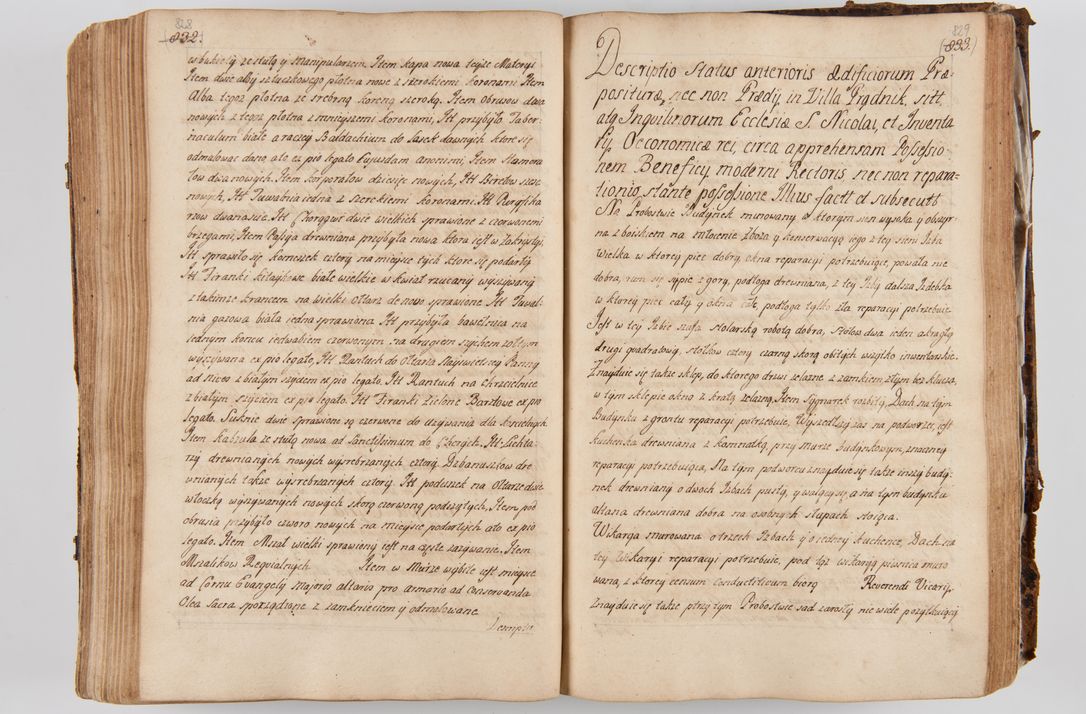 828
832.
w bukiety ze stułą y manipularzem. Item kapa nowa teyże Materyi
Item dwie alby z tłuczkowego płotna nowe z szerokiemi koronami Item
Alba tegoż płotna ze srebrną koroną szeroką. Item obrusow dwa
nowych z tegoż płotna z mnieyszemi koronami, Itt przybyło Taber-
inaculum białe a raczey Baldachium do lasek dawnych ktore się
odmalować dano, ato ex pio legato kujusdam anonimi, Item Humera
łow dwa nowych. Item korporałow dziewięc nowych, Itt Biretow szesc
nowych, Itt Tuwalnia iedna z szerokiemi koronami. Itt Puryfika
rzow dwanascie. Itt Chorągwi dwie wielkich sprawione z czerwonemi
brzegami, Item Passya drewniana przybyła nowa ktora iest w Zakrystyi.
Itt sprawiło się komeszek cztery na mieysce tych ktore się podarły
Itt Firanki kitaykowe białe wielkie w kwiat rzucany wyszywany
z takimże krancem na wielki Ołtarz de novo sprawione Itt Tuwal-
nia gazowa biała iedna sprawiona Itt przybyła bawełnica na
iednym koncu iedwabiem czerwonym, na drugiem szychem żołtym
wyszywana ex pio legato, Itt Rantuch do Ołtarza Nayswiętszey Panny
ad nives z białym szyciem ex pio legato. Itt Rantuch na Chrzcielnice
z białym szyciem ex pio legato. Itt Firanki zielone Barziowe ex pio
legato. Suknie dwie sprawione są czerwone do używania dla koscielnych
Item kabzula ze stułą nowa ad Sanctissimum do Chorych. Itt Lichta-
rzy drewnianych nowych wysrebrzanych cztery. Dzbanuszkow dre
wnianych także wysrebrzanych cztery. Itt poduszek na Ołtarze dwie
włoczką wyszywanych nowych skorą czerwoną podszytych, Item pod
obrusia przybyło czworo nowych na mieysce podartych ato ex pio
legato. Item Mszał wielki sprawiony iest na częste zażywanie. Item
Mszalikow Requialnych Item w Murze wybite iest mieysce
ad Cornu Evangelij majoris altaris pro armario ad Conservanda
Olea Sacra sporządzone z zamknieciem y odmalowane.
Descriptio
829
833.
Descriptio Status anterioris Ædificiorum Præ-
posituræ, nec non Prædij in Villa Prądnik, sitt
atq Inquilinorum Ecclesiæ S. Nicolai, et Inventa
rij Oeconomicæ rei, circa apprehensam Possessio-
nem Beneficij moderni Rectoris nec non repara-
tionis stante possessione Illius facti et subsecuti
Na Probostwie Budynek murowany w ktorym sien wysoka y obszyr-
na z boiskiem na młocenie zboża y konserwacyą iego z tey sieni Izba
Wielka w ktorey piec dobry, okna reparacyi potrzebuiące, powała nie
dobra, rum się sypie z gory, podłoga drewniana, z tey Izby dalsza Izdebka
w ktorey piec cały y okna podłoga tylko zła reparacyi potrzebuie
Jest w tey Izbie szafa stolarską robotą dobra, stołow dwa ieden okrągły
drugi quadratowy, stołkow cztery czarną skorą obitych wszytko inwentarskie.
Znayduie się także sklep, do ktorego drzwi żelazne z zamkiem złym bez klucza,
w tym sklepie okno z kratą żelazną, Item Sygnarek rozbity, Dach na tym
Budynku z gruntu reparacyi potrzebuie. Wyszedłszy zas na podworze, iest
kuchenka drewniana z komenatką, przy murze Budynkowym, znaczney
reparacyi potrzebuiąca, Na tym podworcu znayduie się także inszy budy-
nek drewniany o dwoch Izbach pusty, y walący się, a na tym budynku
altana drewniana dobra na osobnych słupach stoiąca.
Wikarya murowana o trzech Izbach y o iedney kuchence, Dach na
tey Wikaryi reparacyi potrzebuie, pod tąż wikaryą piwnica muro
wana, z ktorey censum conductitium biorą Reverendi Vicarij.
Znayduie się także przy tym Probostwie sad zarosły nie wiele pożytkuiący